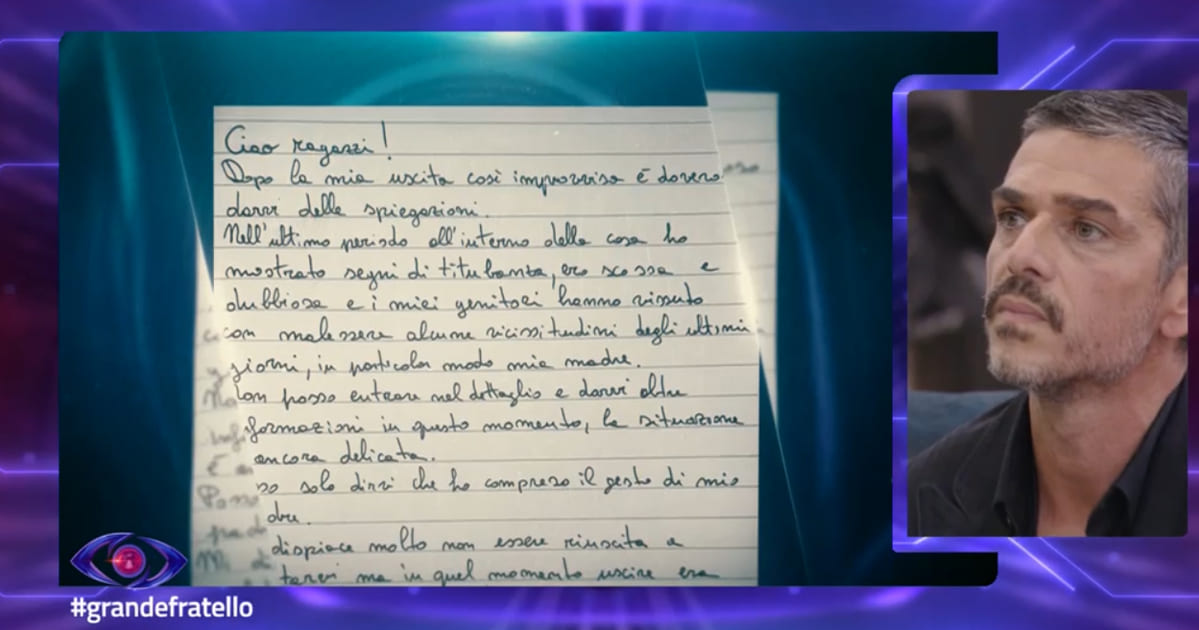 Ciao ragazzi!
Dopo la mia uscita così improvvisa è dovero
darvi delle spiegazioni.
Nell'ultimo periodo all'interno della casa ho
mostrato segni di titubanza, ero scossa e
dubbiosa e i miei genitori hanno vissuto
con malessere alcune vicissitudini degli ultimi
giorni, in particolar modo mia madre.
on posso entrare nel dettaglio e darvi altre
formazioni in questo momento, la situazione
ancora delicata.
so solo dirvi che ho compreso il gesto di mio
dre.
dispiace molto non essere riuscita a
tarvi ma in quel momento uscire era
#grandefratello